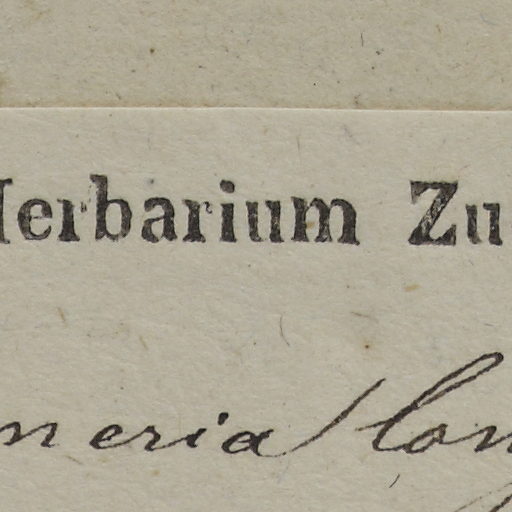 Herbarium Zu
neria lon